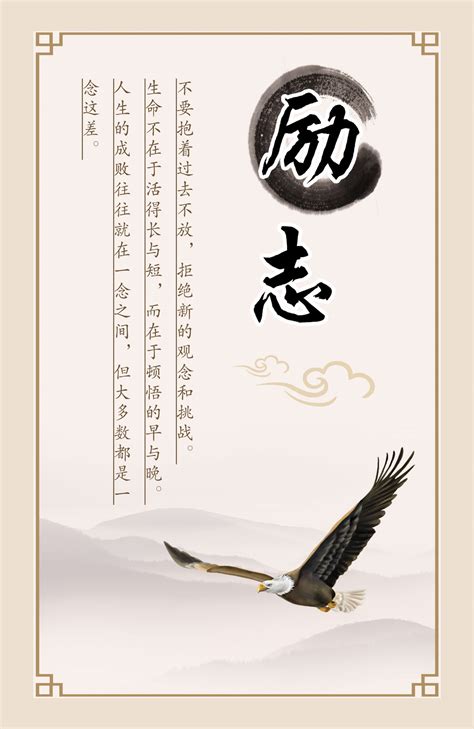 励志
不要抱着过去不放，拒绝新的观念和挑战。
生命不在于活得长与短，而在于顿悟的早与晚。
人生的成败往往就在一念之间，但大多数都是一
念这差。